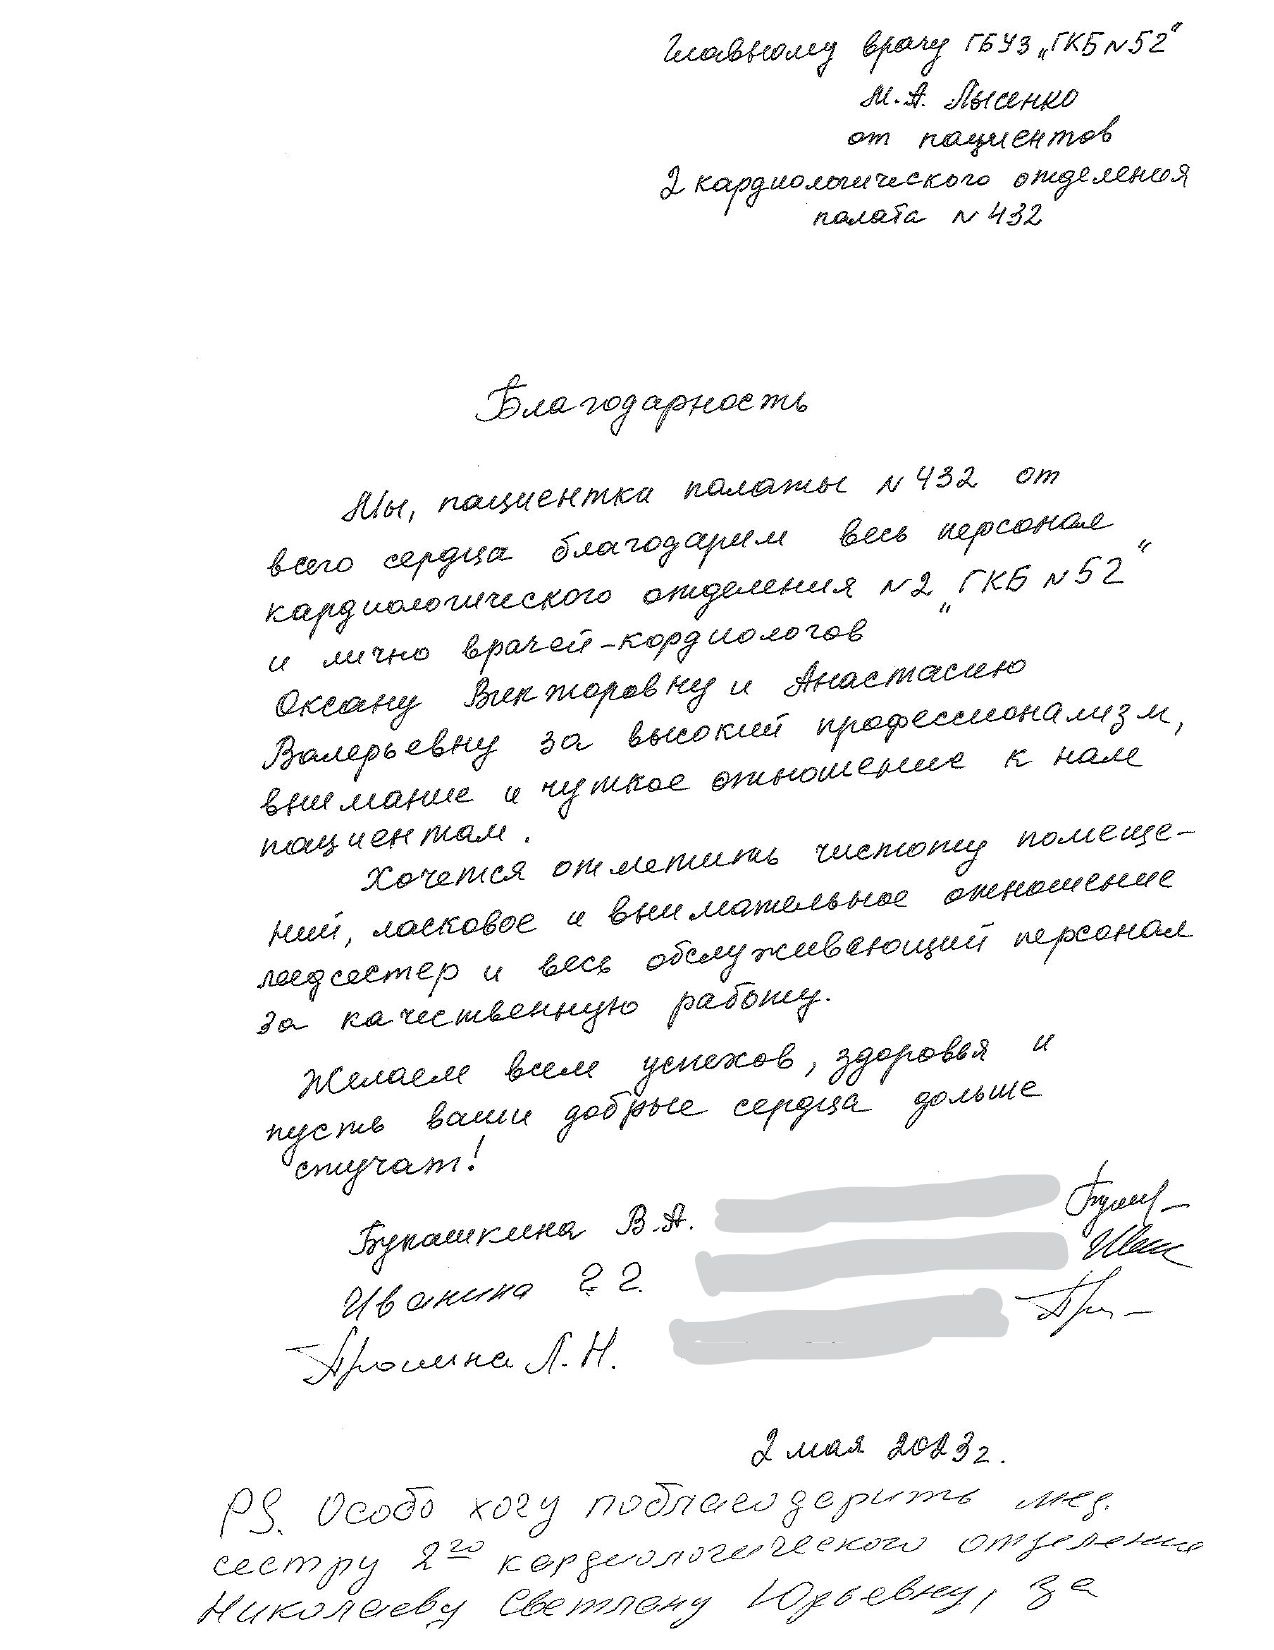 Главному врачу ГБУЗ „ГКБ N 52"
М.А. Лысенко
от пациентов
2 кардиологического отделения
палата N 432
Благодарность
Мы, пациентка палаты N 432 от
всего сердца благодарим весь персонал
кардиологического отделения N 2 „ГКБ N 52"
и лично врачей-кордиологов
Оксану Викторовну и Анастасию
Валерьевну за высокий профессионализм,
внимание и чуткое отношение к нам
пациентам.
Хочется отметить чистоту помеще-
ний, ласковое и внимательное отношение
медсестер и весь обслуживающий персонал
за качественную работу.
Желаем всем успехов, здоровья и
пусть ваши добрые сердца дольше
стучат!
Букашкина В.А.
Иванина Г.Г.
Пронина Л.Н.
2 мая 2023 г.
PS. Особо хочу поблагодарить мед.
сестру 2го кардиологического отделения
Николаеву Светлану Юрьевну, за